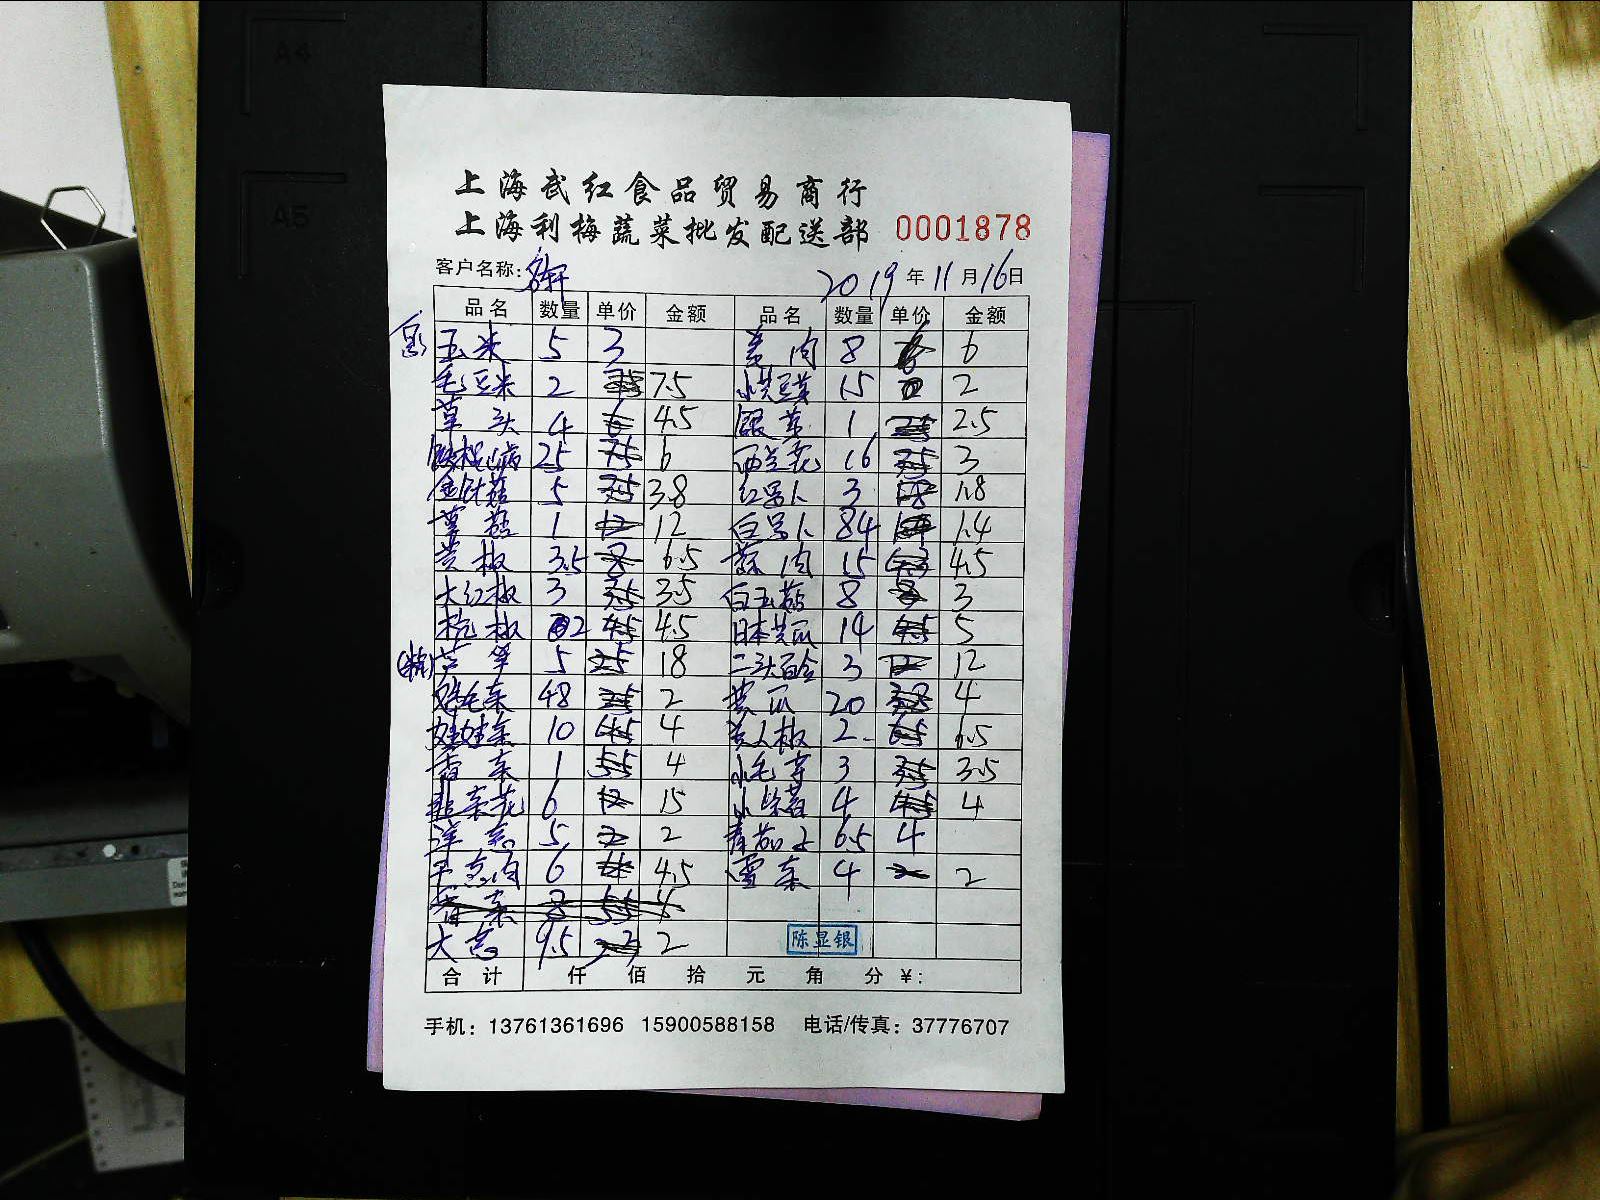 A4
A5
上海武红食品贸易商行
上海利梅蔬菜批发配送部 0001878
客户名称: 2019年11月16日
品名 数量 单价 金额 品名 数量 单价 金额
玉米 5 3 肉 8 6
毛豆米 2 7.5 小黄豆芽 15 2
草头 4 6 4.5 银芽 1 2.5
25 7.5 6 西兰花 16 3.5 3
金针菇 5 3.5 3.8 红萝卜 3 1.8 1.8
草菇 1 12 12 白萝卜 84 1.4
黄椒 3.5 8 6.5 蒜肉 15 4.5
大红椒 3 3.5 3.5 白玉菇 8 3
杭椒 2 4.5 4.5 日本黄瓜 14 4.5 5
芦笋 5 18 二头百合 3 12 12
鸡毛菜 48 2.5 2 黄瓜 20 3.8 4
娃娃菜 10 4.5 4 美人椒 2 6.5 6.5
香菜 1 5.5 4 小毛芋 3 3.5 3.5
韭菜花 6 12 15 小紫薯 4 4.5 4
洋葱 5 2 2 青茄子 6.5 4
干葱肉 6 4 4.5 雪菜 4 2 2
香菜 8 5.5
大葱 9.5 2 陈显银
合计 仟 佰 拾 元 角 分 ¥:
手机: 13761361696 15900588158 电话/传真: 37776707